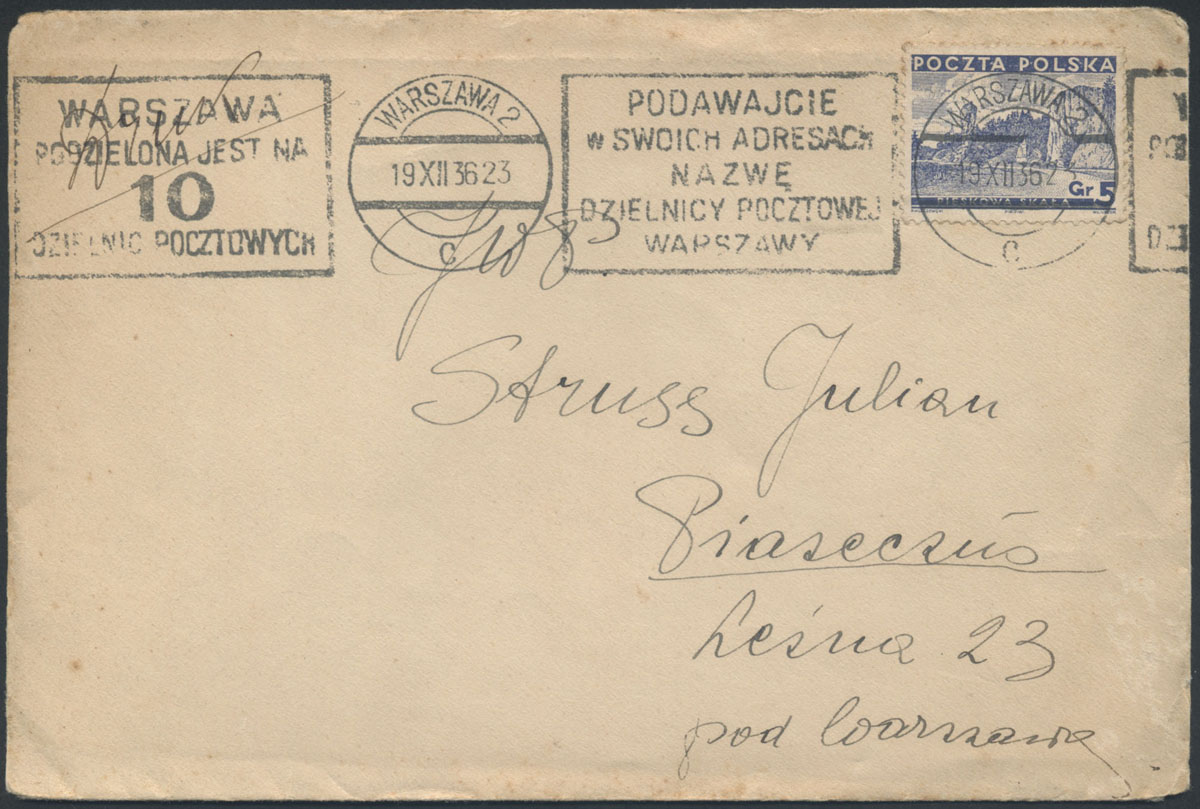 WARSZAWA
PODZIELONA JEST NA
10
DZIELNIC POCZTOWYCH
WARSZAWA 2
19 XII 36 23
C
PODAWAJCIE
w SWOICH ADRESACH
NAZWĘ
DZIELNICY POCZTOWEJ
WARSZAWY
POCZTA POLSKA
Gr. 5
PIESKOWA SKAŁA
WARSZAWA 2
19 XII 36 2
C
W
DZI
Struss Julian
Piaseczno
Leśna 23
pod Warszawą